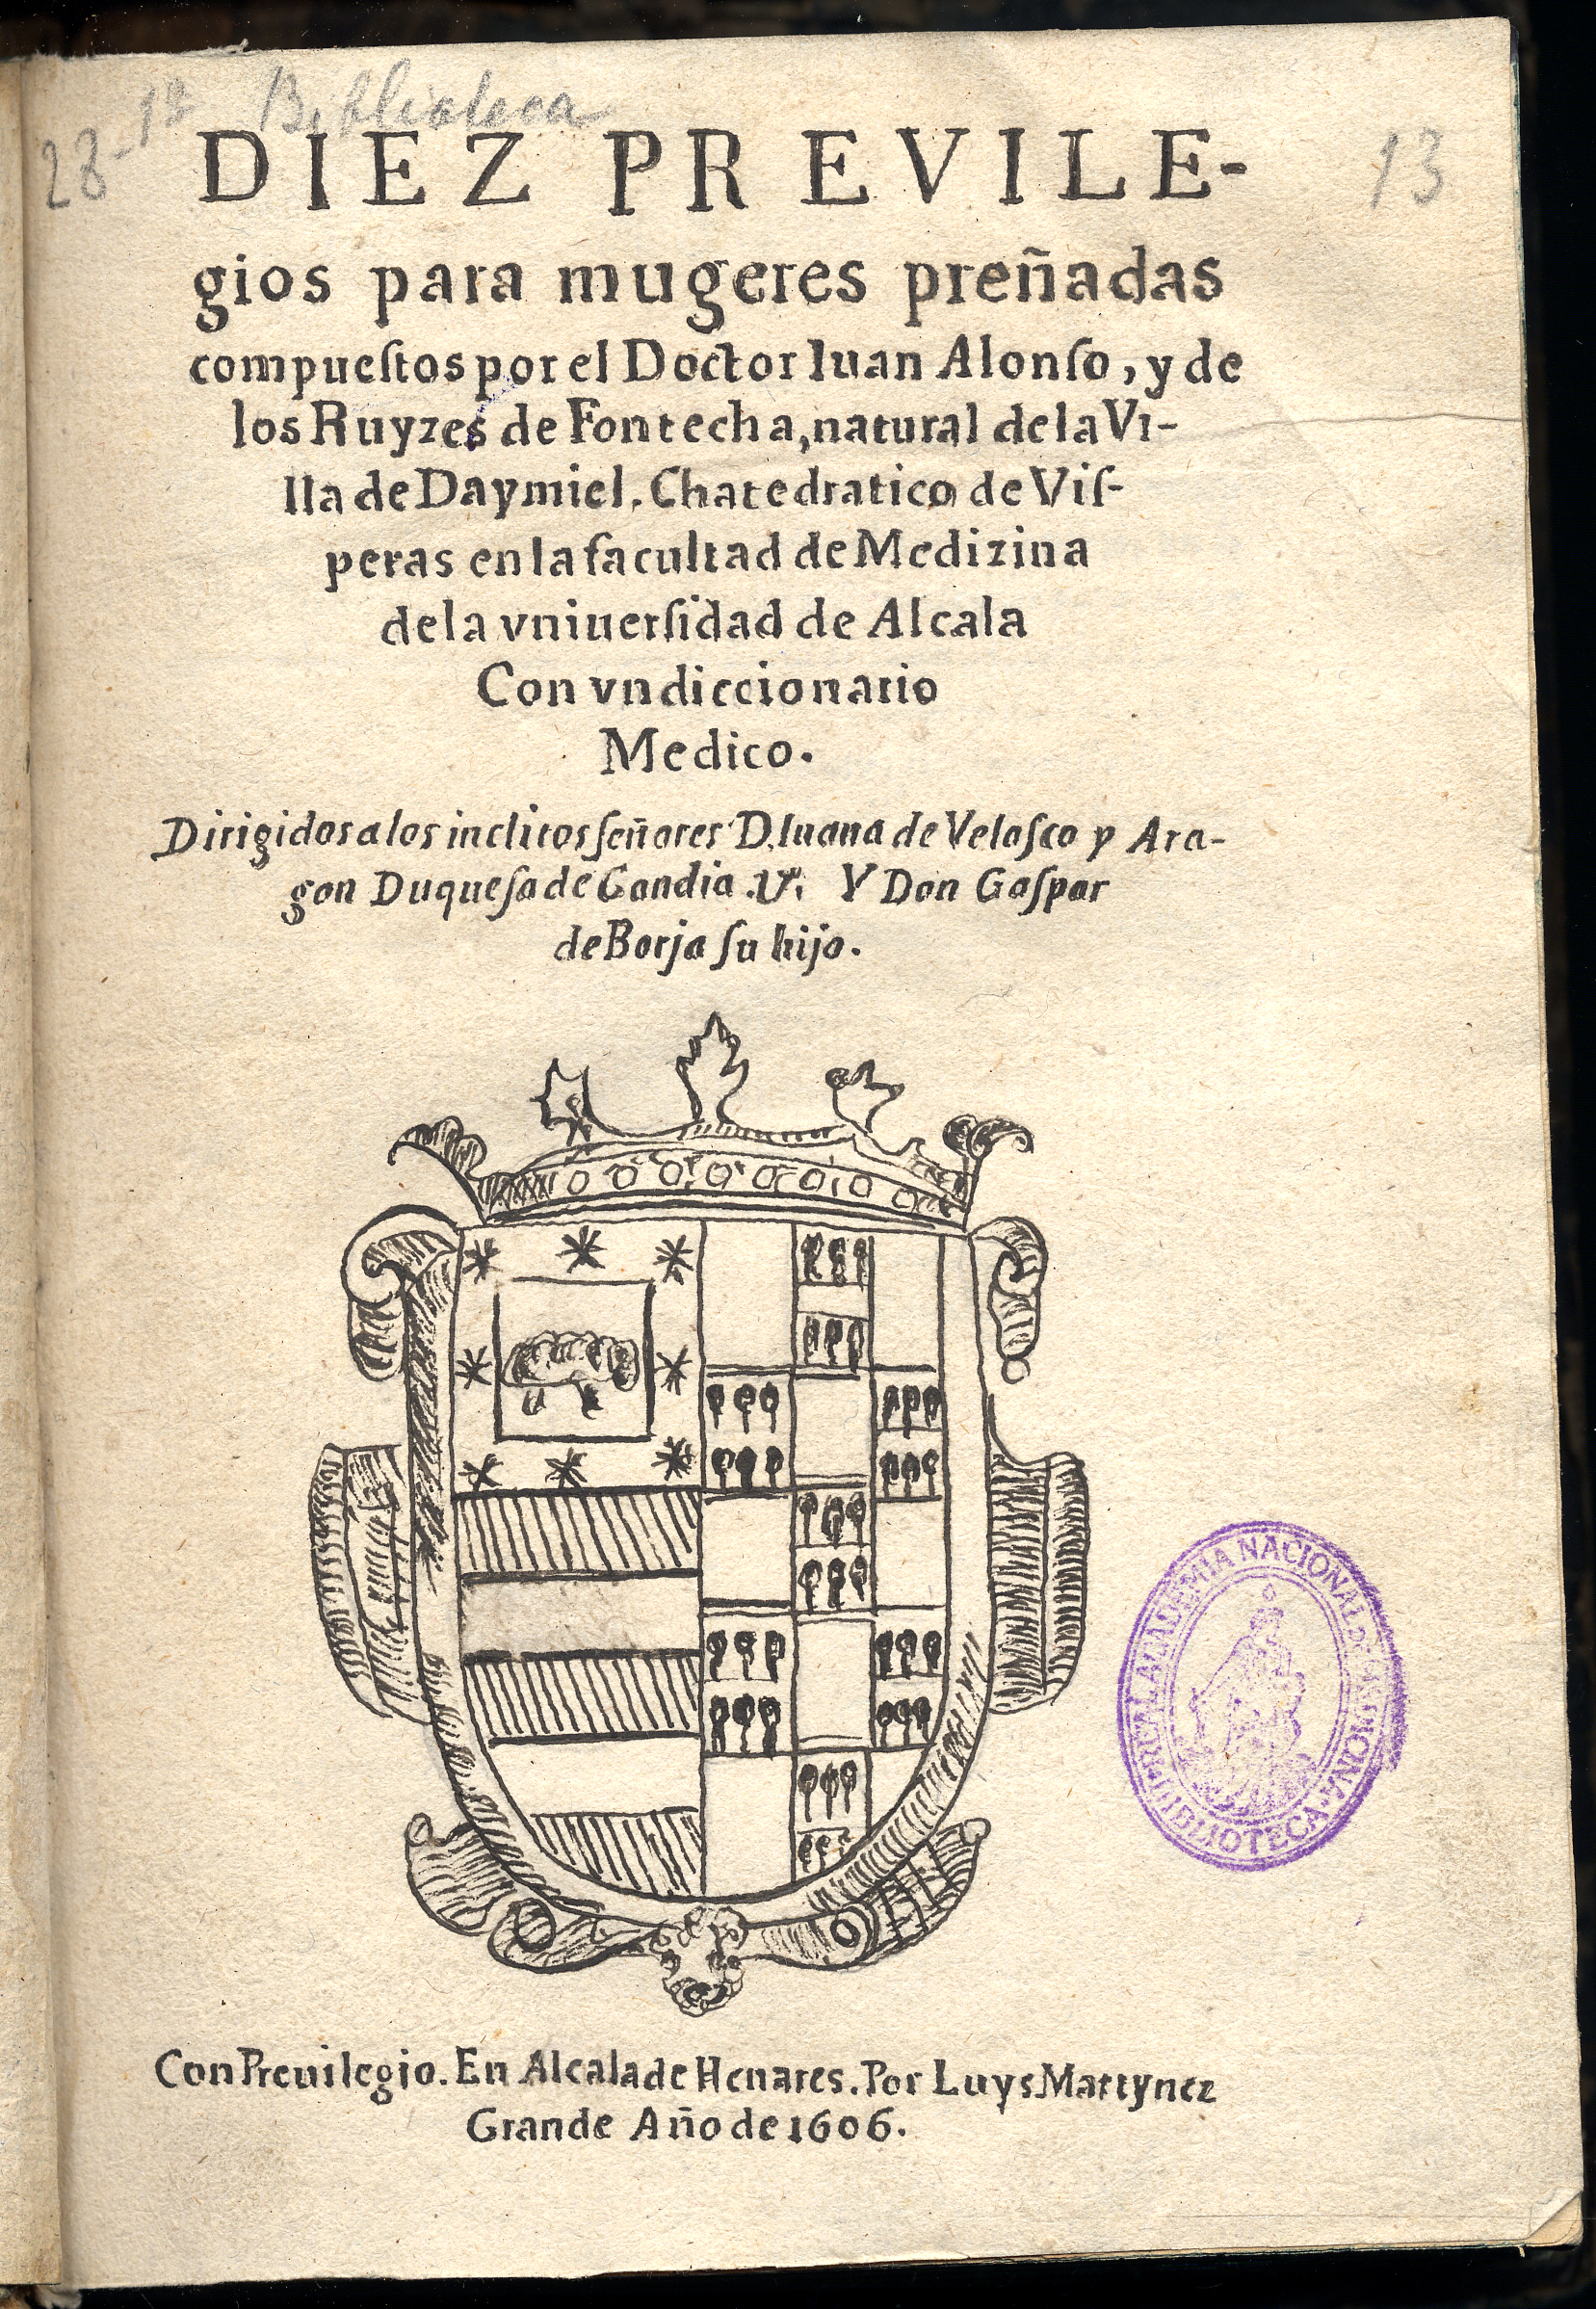 28-1ª Biblioteca
13
DIEZ PREVILE-
gios para mugeres preñadas
compueſtos por el Doctor Iuan Alonſo, y de
los Ruyzes de Fontecha, natural de la Vi-
lla de Daymiel. Chatedratico de Viſ-
peras en la facultad de Medizina
de la vniuerſidad de Alcala
Con vn diccionario
Medico.
Dirigidos a los inclitos ſeñores D. Iuana de Velaſco y Ara-
gon Duqueſa de Gandia. Vª. Y Don Gaſpar
de Borja ſu hijo.
REAL ACADEMIA NACIONAL DE MEDICINA
BIBLIOTECA
Con Preuilegio. En Alcala de Henares. Por Luys Martynez
Grande Año de 1606.